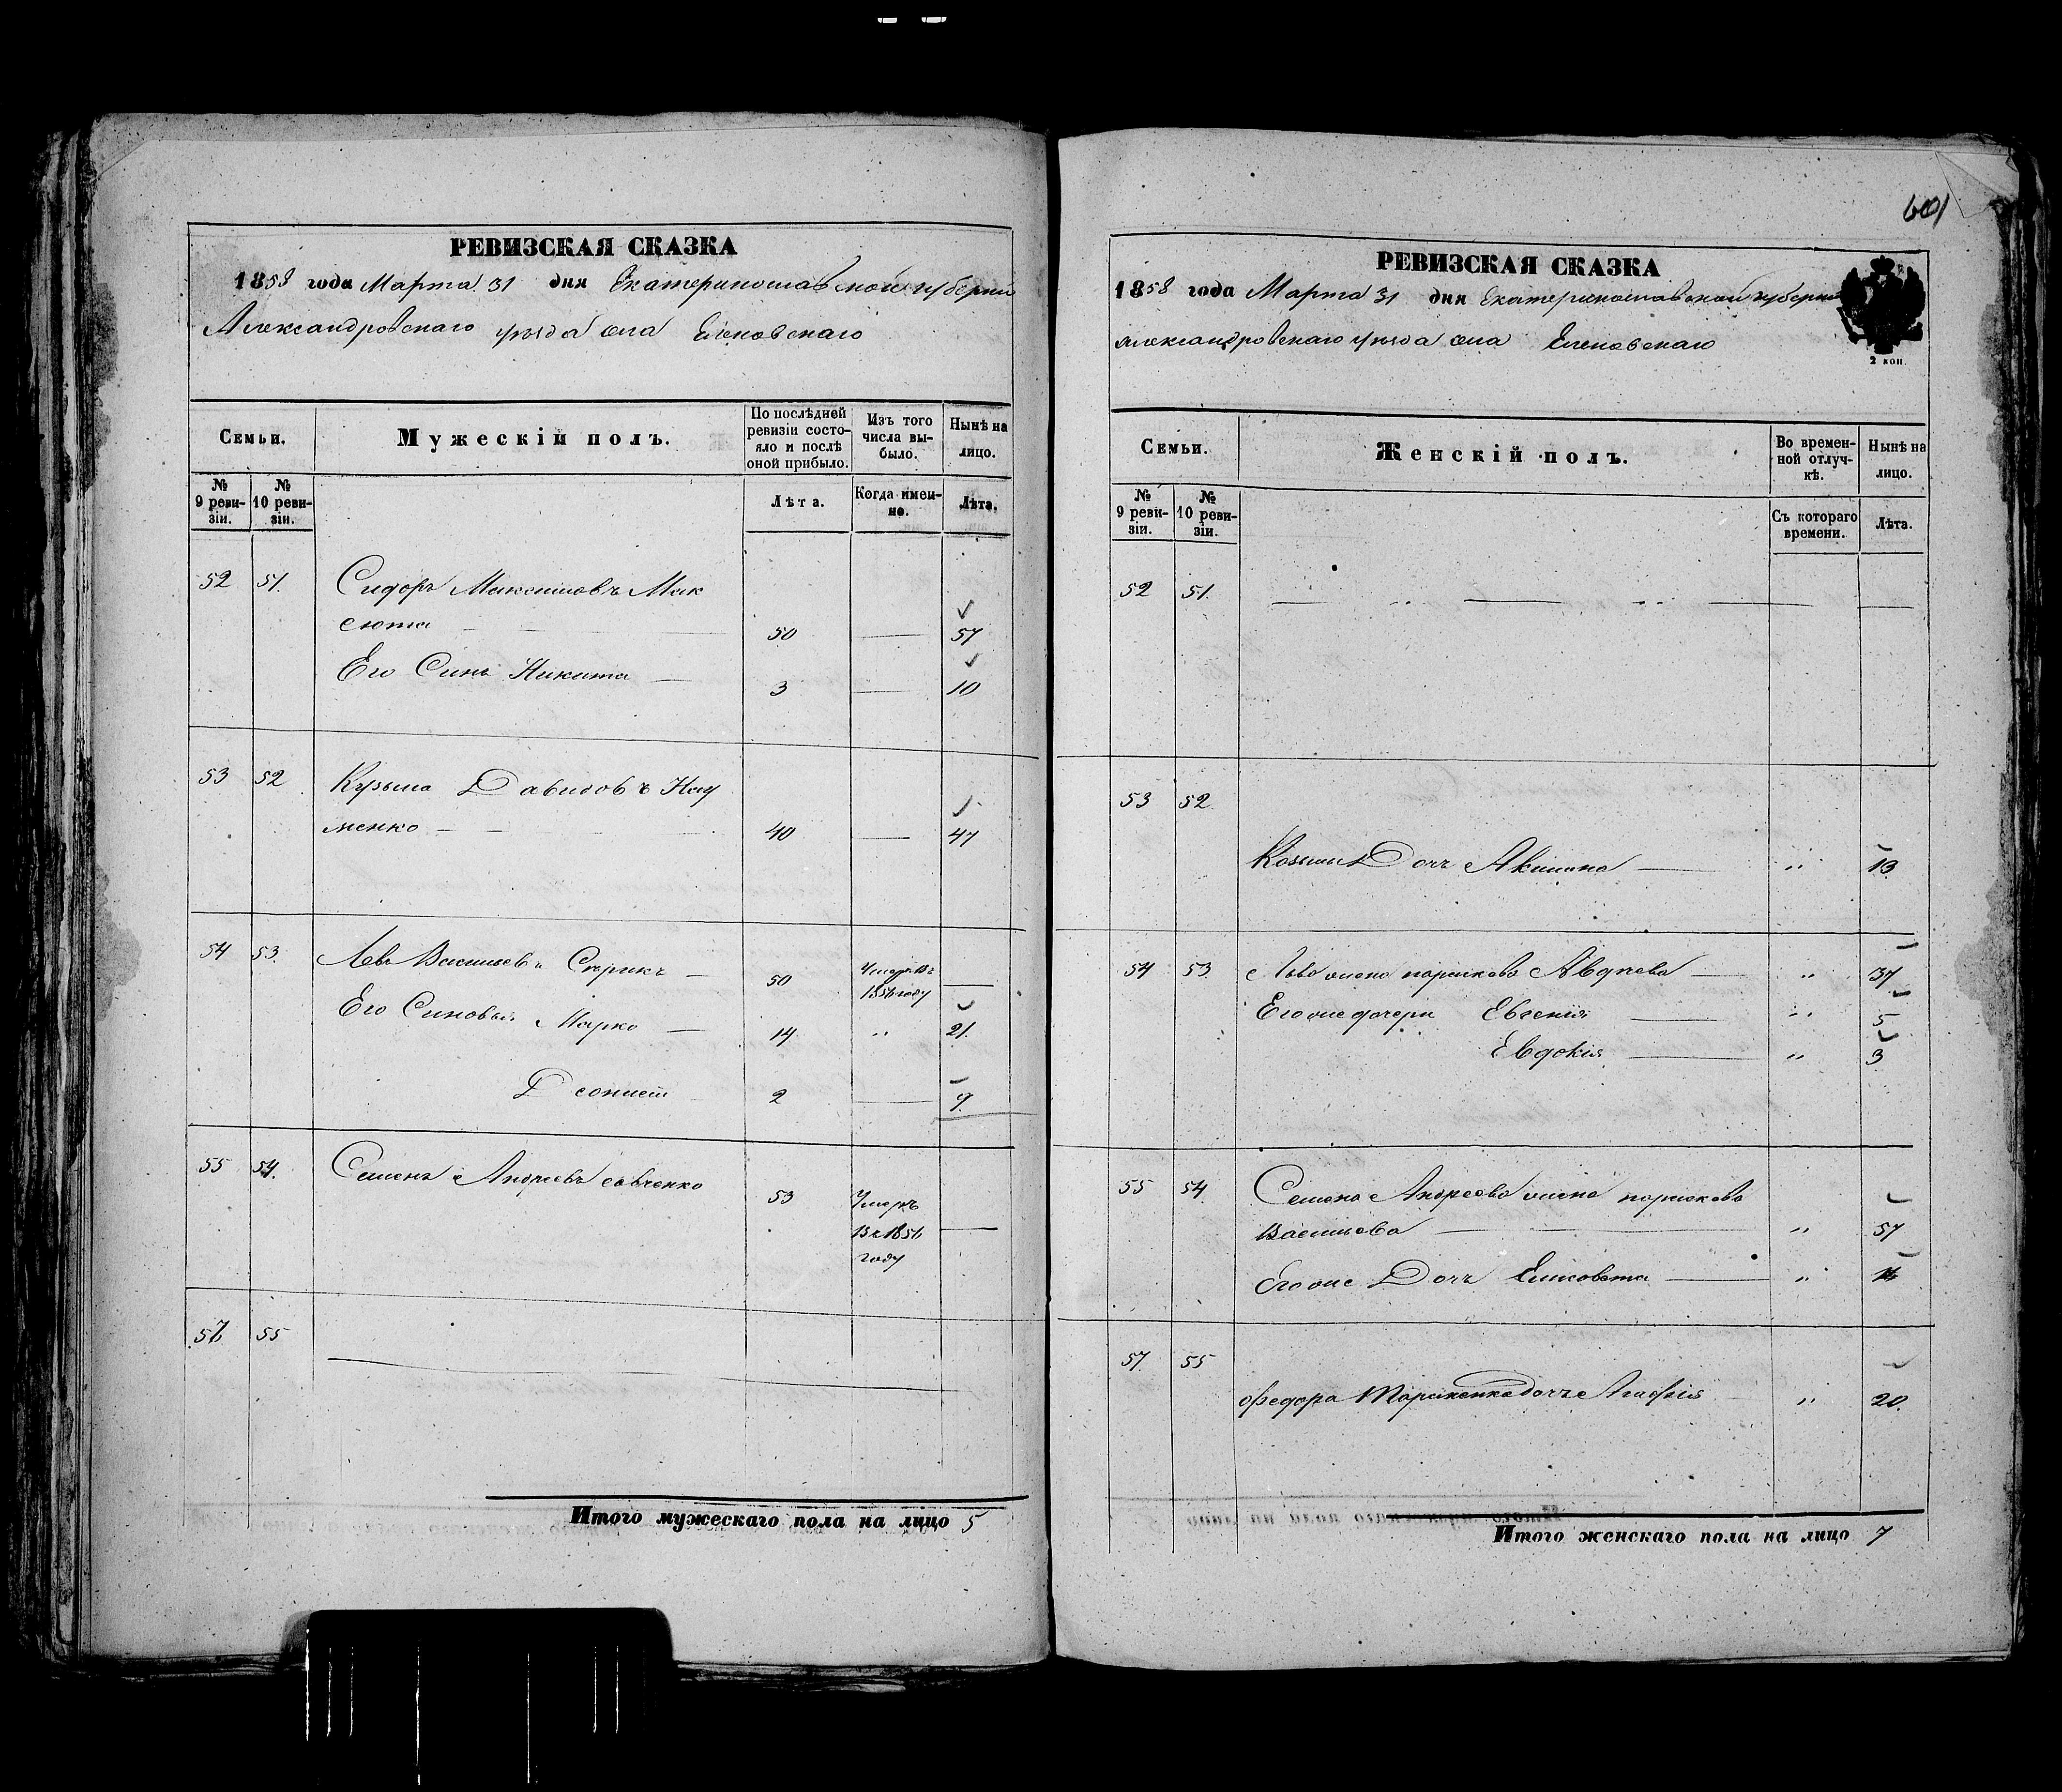 601
РЕВИЗСКАЯ СКАЗКА
1858 года Марта 31 дня Екатеринославской губерніи
Александровскаго уѣзда села Еленовскаго
Семьи.
Мужескій полъ.
По послѣдней ревизіи состояло и послѣ оной прибыло.
Изъ того числа выбыло.
Нынѣ на лицо.
№ 9 ревизіи.
№ 10 ревизіи.
Лѣта.
Когда именно.
Лѣта.
52 51. Сидоръ Максимовъ Мак
сюта 50 57
Его Синъ Никита 3 10
53 52 Кузьма Давидовъ Нау
менко 40 47
54 53. Левъ Васильевъ 50 Умеръ въ
1856 году
Его Синовья Марко 14 " 21.
Деонисій 2 9.
55 54. Семенъ Андреевъ Савченко 53 Умеръ
Въ 1856
году
57 55
Итого мужескаго пола на лицо 5
РЕВИЗСКАЯ СКАЗКА
1858 года Марта 31 дня Екатеринославской губерніи
Александровскаго уѣзда села Еленовскаго
2 коп.
Семьи.
Женскій полъ.
Во временной отлучкѣ.
Нынѣ на лицо.
№ 9 ревизіи.
№ 10 ревизіи.
Съ котораго времени.
Лѣта.
52 51. " "
53 52.
Козьмы Дочь Акилина " 13
54 53 Льва жена Авдѣева " 37
Его же дочери Евгенія " 5
Евдокія " 3
55 54 Семена Андреева жена
Васильева " 57
Его же Дочь Елисавета "
57. 55
Федора дочь Агафія " 20.
Итого женскаго пола на лицо 7